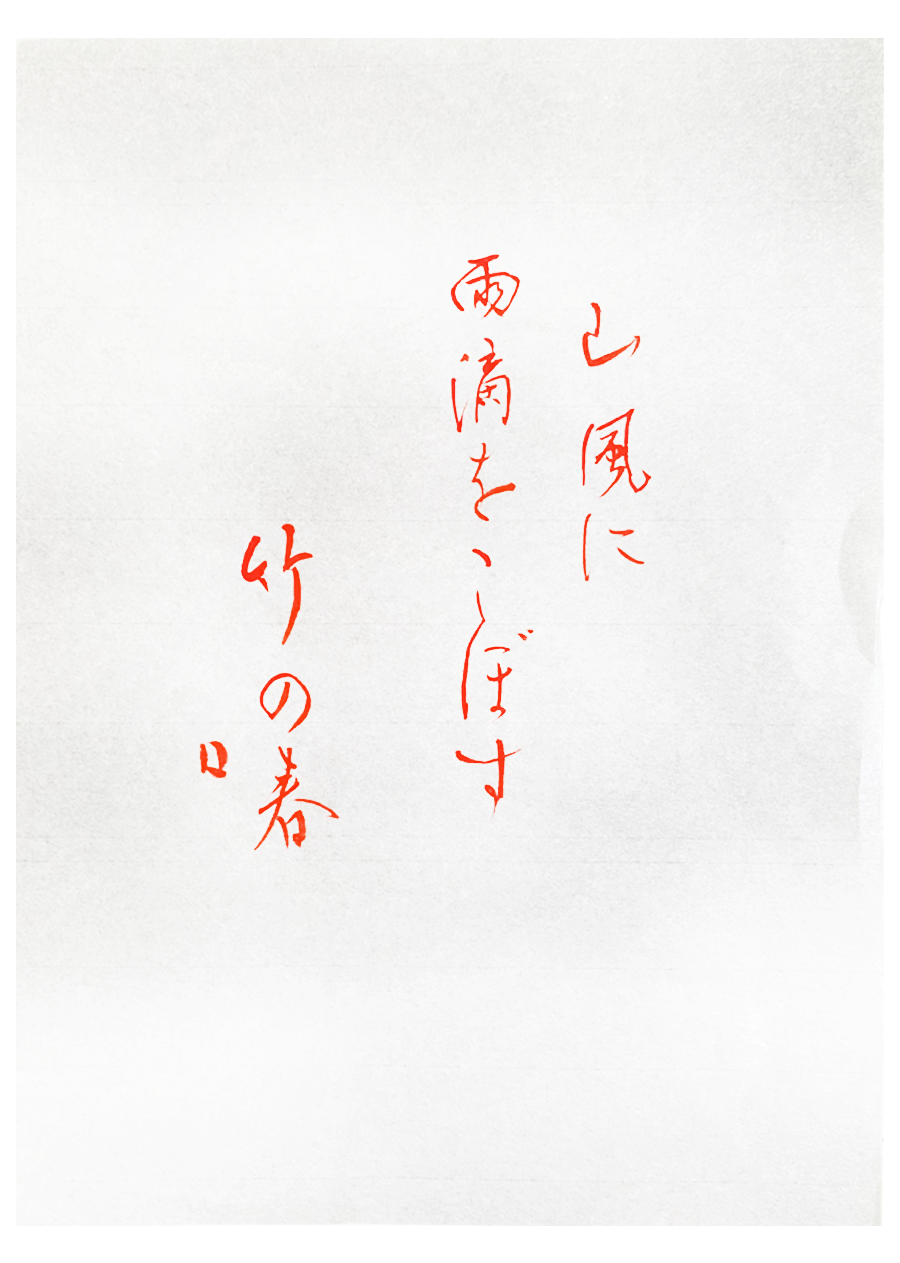 山風に
雨滴をこぼす
竹の春